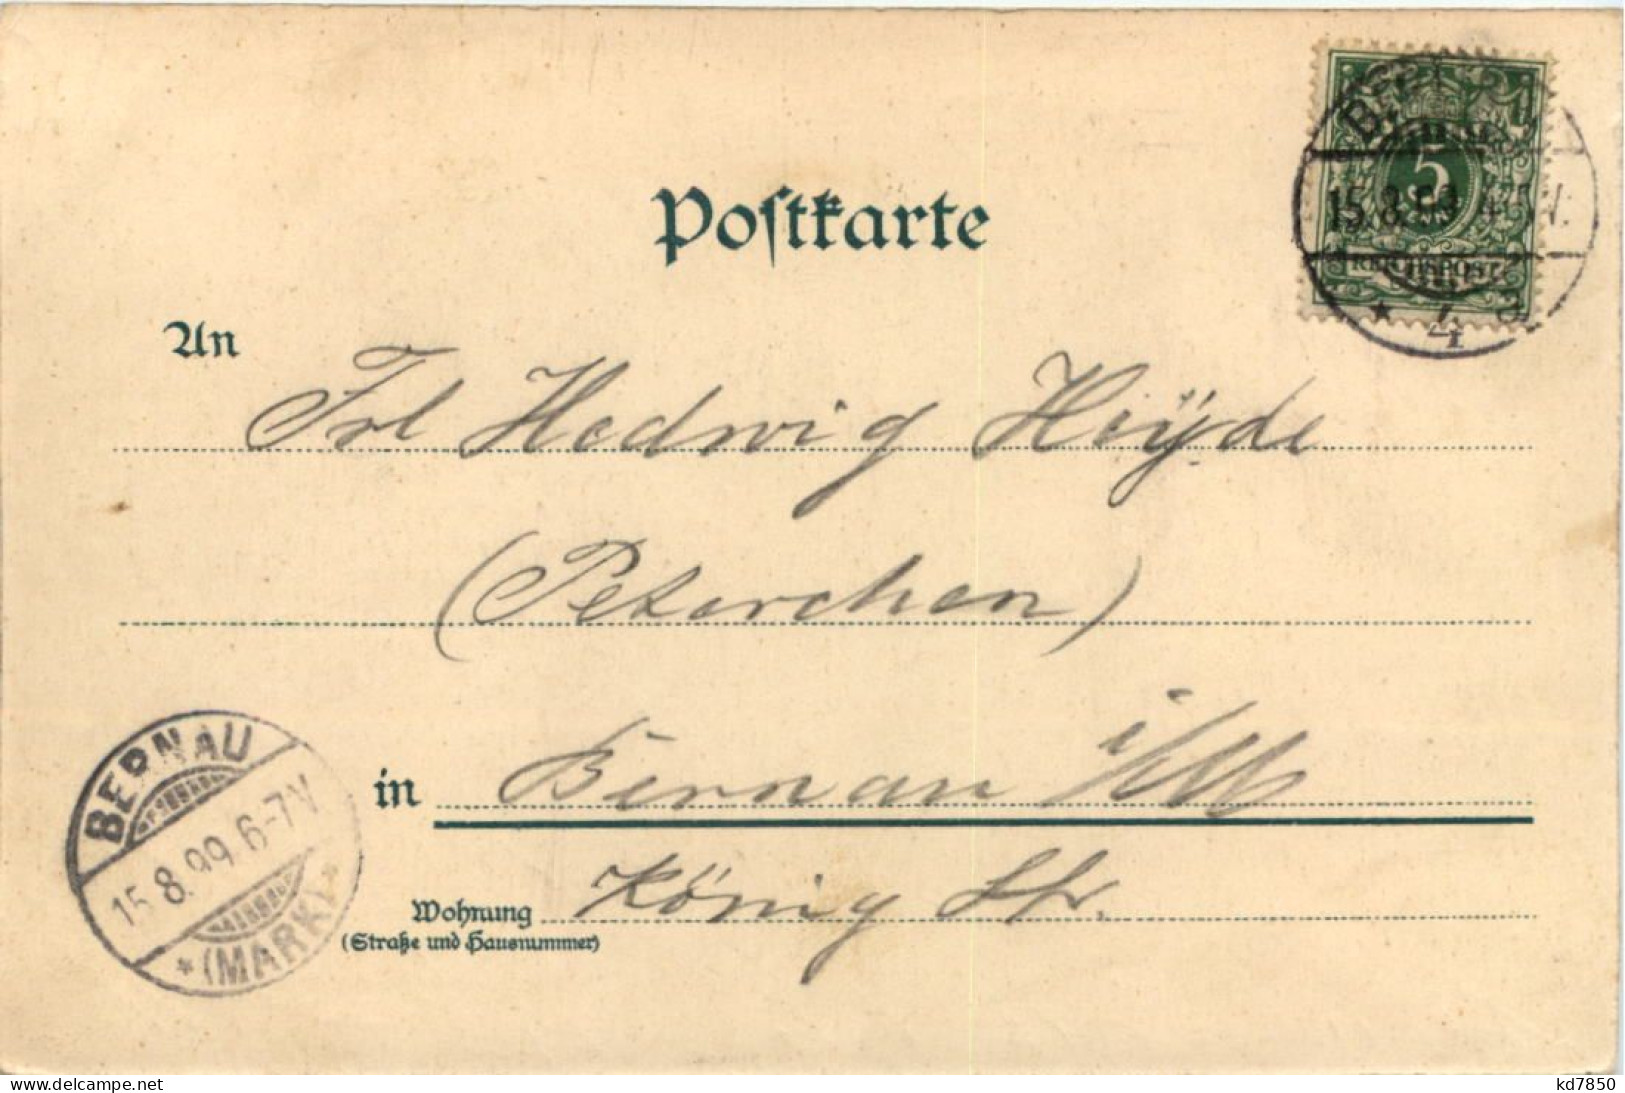 Postkarte
5
REICHSPOST
15.8.99
4
An Frl Hedwig Heÿde
(Peterchen)
in Bernau i/M
König Str.
Wohnung
(Straße und Hausnummer)
BERNAU
15.8.99.6-7V
*(MARK)*
delcampe.net
kd7850